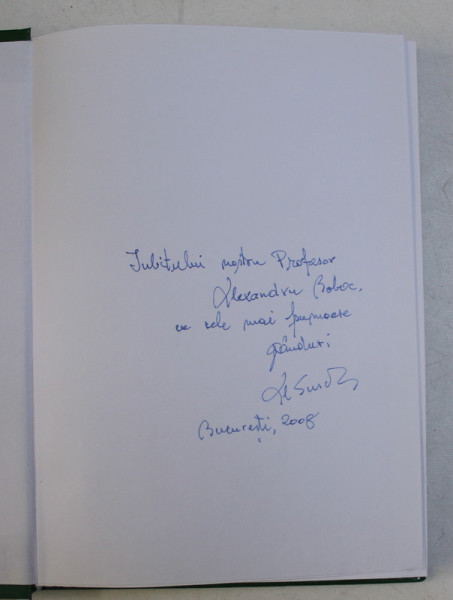 Iubitului nostru Profesor
Alexandru Boboc,
cu cele mai frumoase
gânduri
Al Surdu
București, 2008